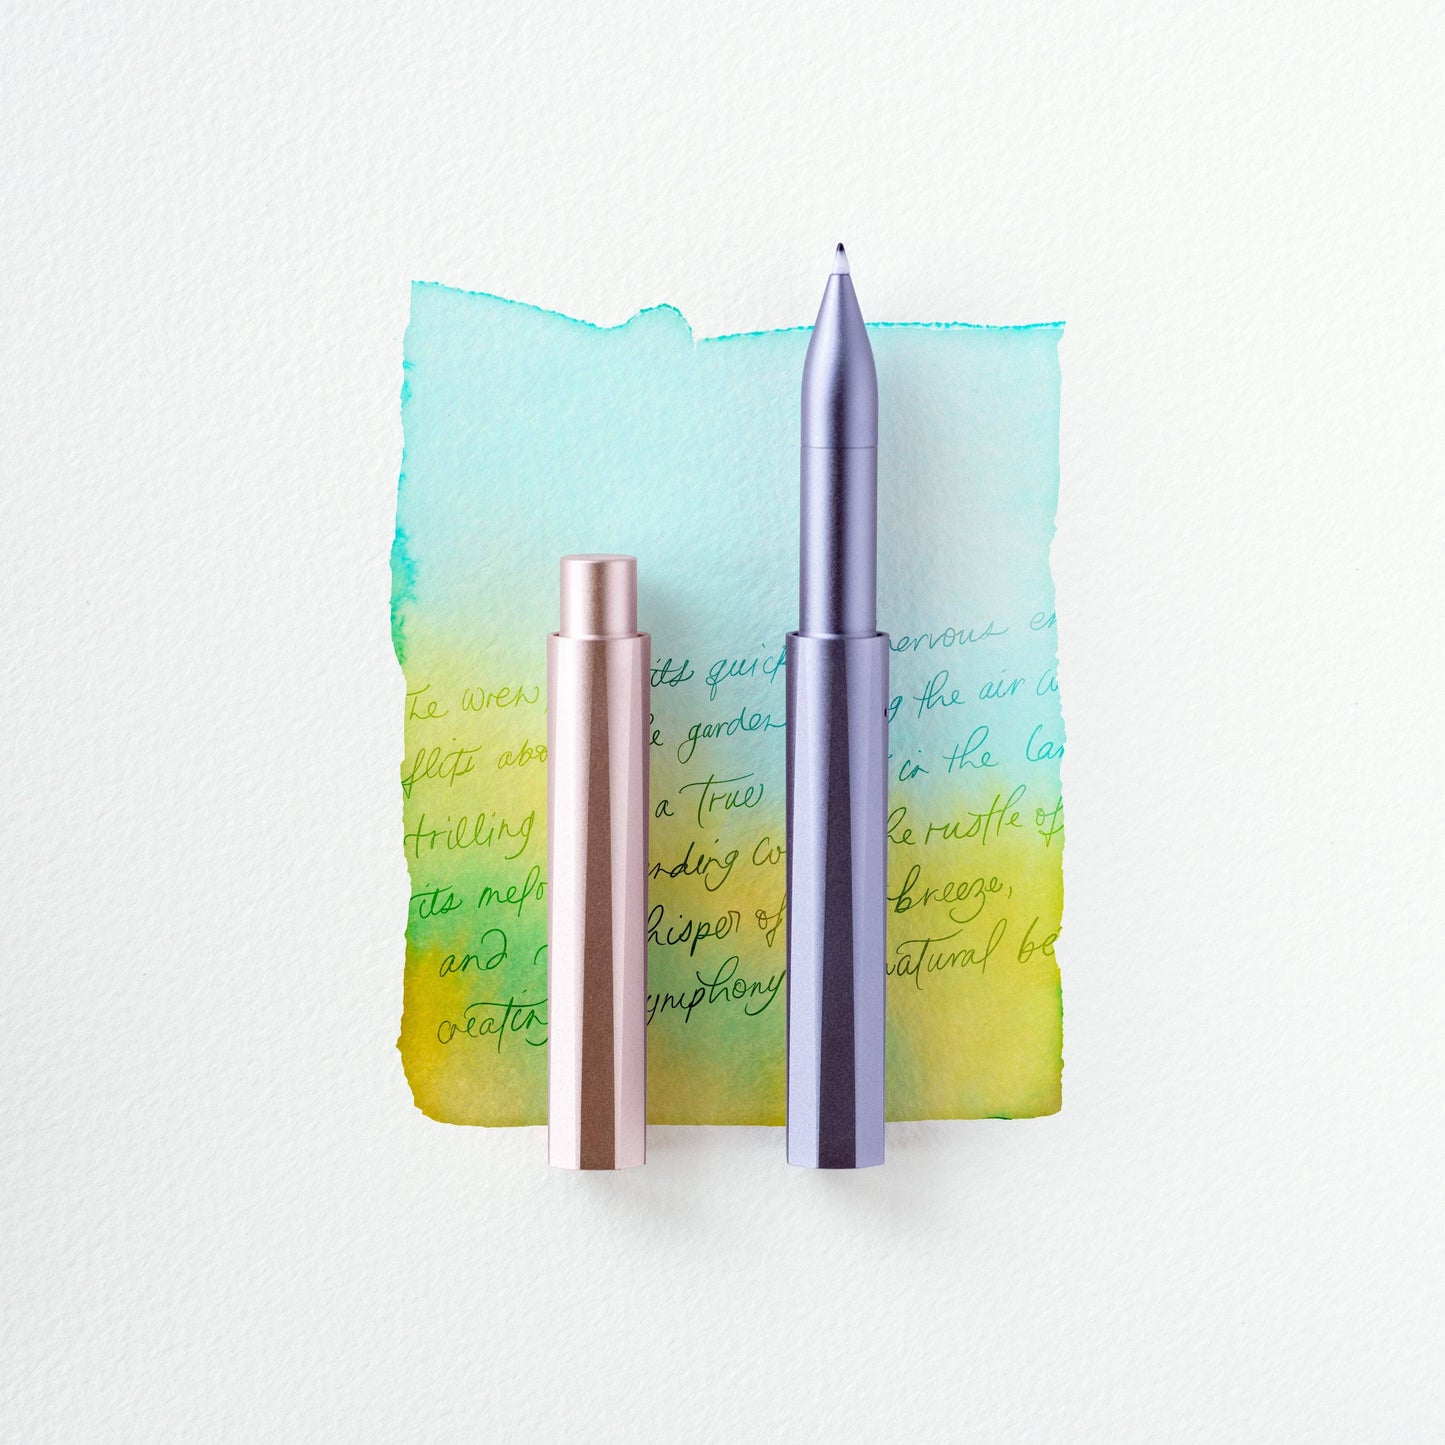 The wren its quick nervous en
flits abo e garden g the air w
trilling a true in the lan
its melo nding co he rustle of
and hisper of breeze,
creatin ymphony natural be